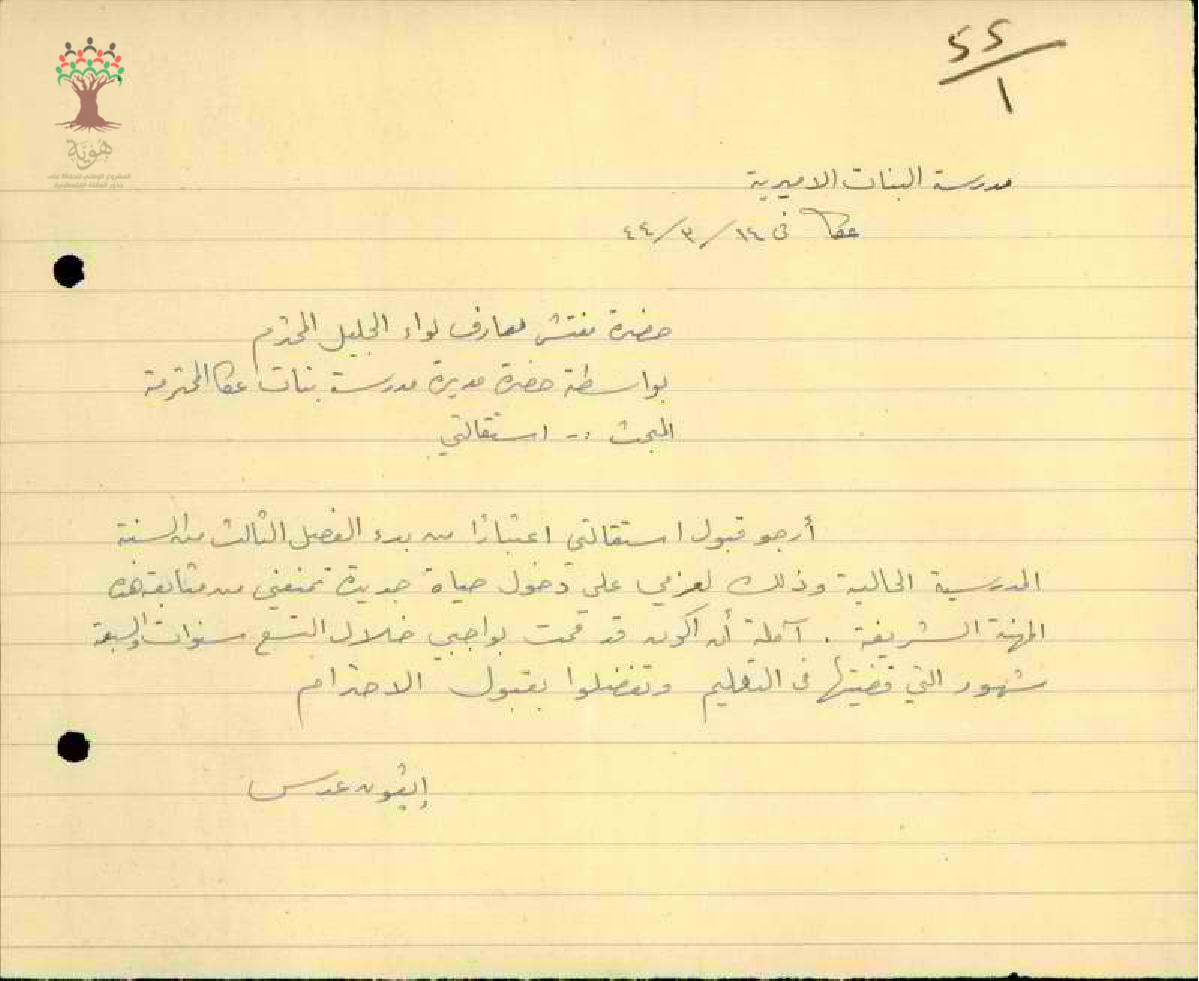 ٤٤
١
هوية
المشروع الوطني للحفاظ على
جذور العائلة الفلسطينية
مدرسة البنات الاميرية
عكا في ١٤/٣/٤٤
حضرة مفتش معارف لواء الجليل المحترم
بواسطة حضرة مديرة مدرسة بنات عكا المحترمة
المبحث :- استقالتي
أرجو قبول استقالتي اعتبارًا من بدء الفصل الثالث من السنة
المدرسية الحالية وذلك لعزمي على دخول حياة جديدة تمنعني من متابعة هذه
المهنة الشريفة . آملة أن اكون قد قمت بواجبي خلال التسع سنوات والسبعة
شهور التي قضيتها في التعليم وتفضلوا بقبول الاحترام
إيڤون عدس